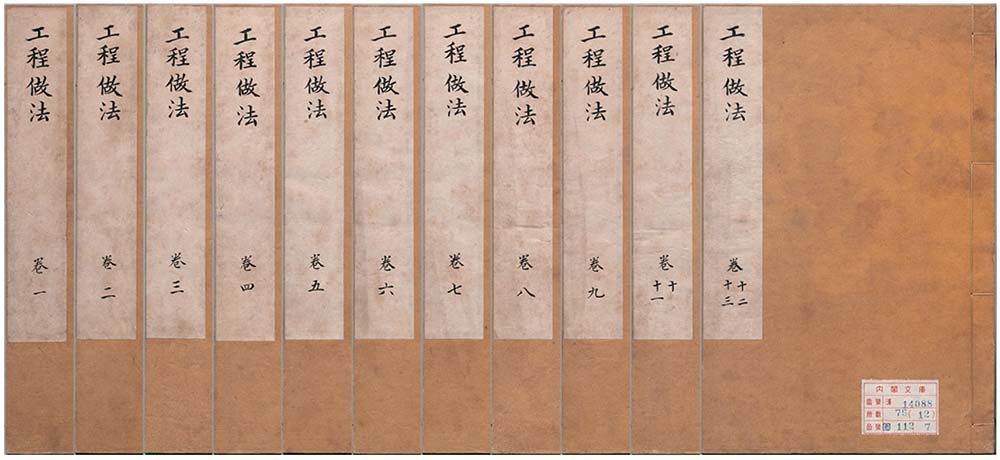 工程做法 卷一
工程做法 卷二
工程做法 卷三
工程做法 卷四
工程做法 卷五
工程做法 卷六
工程做法 卷七
工程做法 卷八
工程做法 卷九
工程做法 卷十 十一
工程做法 卷十二 十三
內閣文庫
番號 漢 14088
冊數 79(12)
函號 112 7